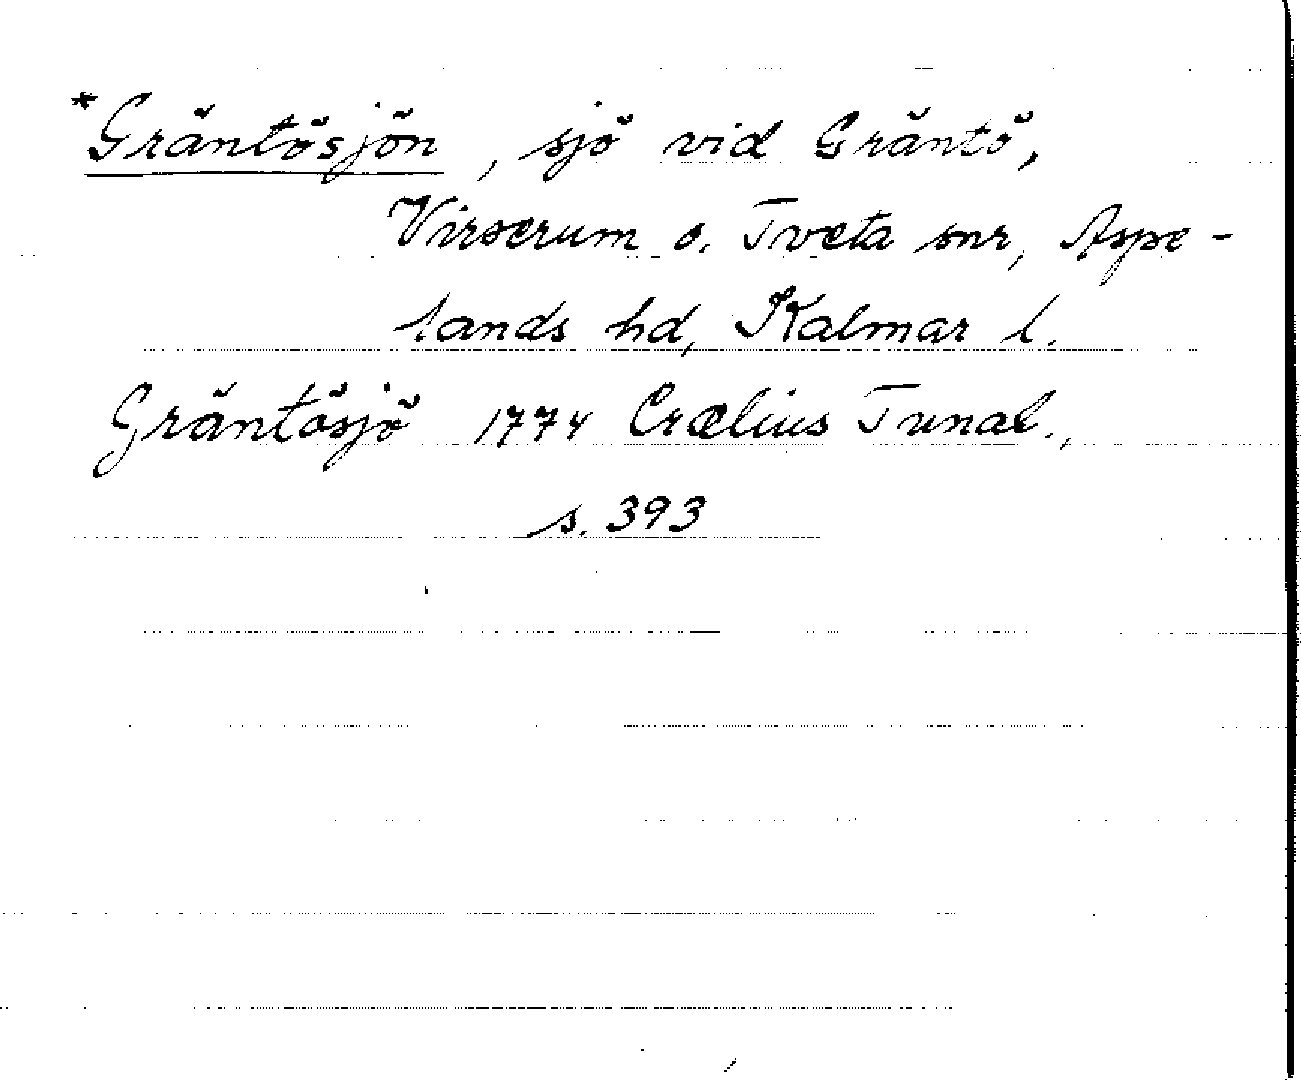 *Gräntösjön, sjö vid Gräntö,
Virserum o. Tveta snr, Aspe-
lands hd, Kalmar l.
Gräntösjö 1774 Crælius Tunal.,
s. 393